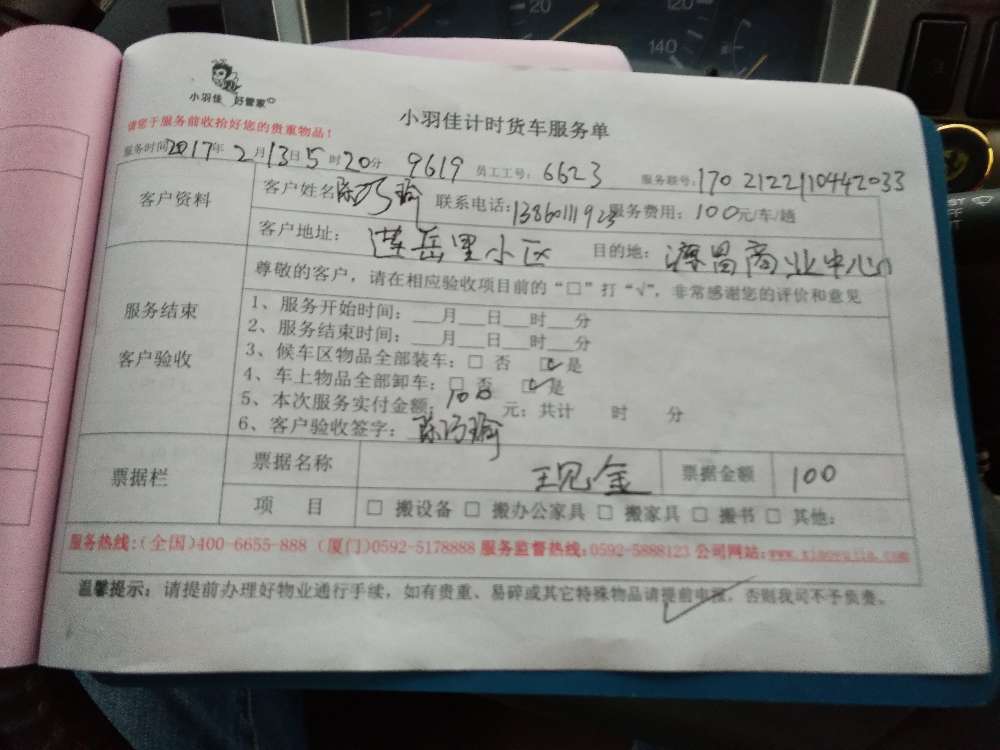 20
120
140
小羽佳 好管家
小羽佳计时货车服务单
请您于服务前收拾好您的贵重物品！
服务时间2017年2月13日5时20分 9619 员工工号：6623 服务联号：170 2122110442033
客户资料 客户姓名 陈巧瑜 联系电话：13860111923 服务费用：100元/车/趟
客户地址： 莲岳里小区 目的地： 商业中心
服务结束 客户验收
尊敬的客户，请在相应验收项目前的“□”打“√”，非常感谢您的评价和意见
1、服务开始时间：___月___日___时___分
2、服务结束时间：___月___日___时___分
3、候车区物品全部装车：□ 否 ☑是
4、车上物品全部卸车：□ 否 ☑是
5、本次服务实付金额：100 元；共计 时 分
6、客户验收签字：陈巧瑜
票据栏 票据名称 现金 票据金额 100
项 目 □ 搬设备 □ 搬办公家具 □ 搬家具 □ 搬书 □ 其他：
服务热线：（全国）400-6655-888 （厦门）0592-5178888 服务监督热线：0592-5888123 公司网站：www.xiaoyujia.com
温馨提示：请提前办理好物业通行手续，如有贵重、易碎或其它特殊物品请提前申报，否则我司不予负责。